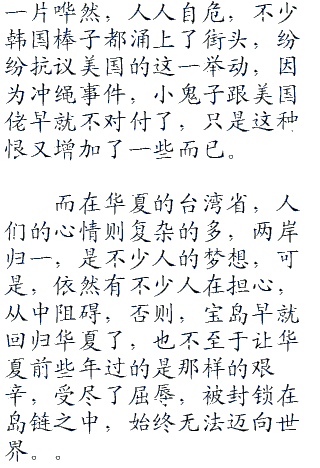 一片哗然，人人自危，不少
韩国棒子都涌上了街头，纷
纷抗议美国的这一举动，因
为冲绳事件，小鬼子跟美国
佬早就不对付了，只是这种
恨又增加了一些而已。
而在华夏的台湾省，人
们的心情则复杂的多，两岸
归一，是不少人的梦想，可
是，依然有不少人在担心，
从中阻碍，否则，宝岛早就
回归华夏了，也不至于让华
夏前些年过的是那样的艰
辛，受尽了屈辱，被封锁在
岛链之中，始终无法迈向世
界。。